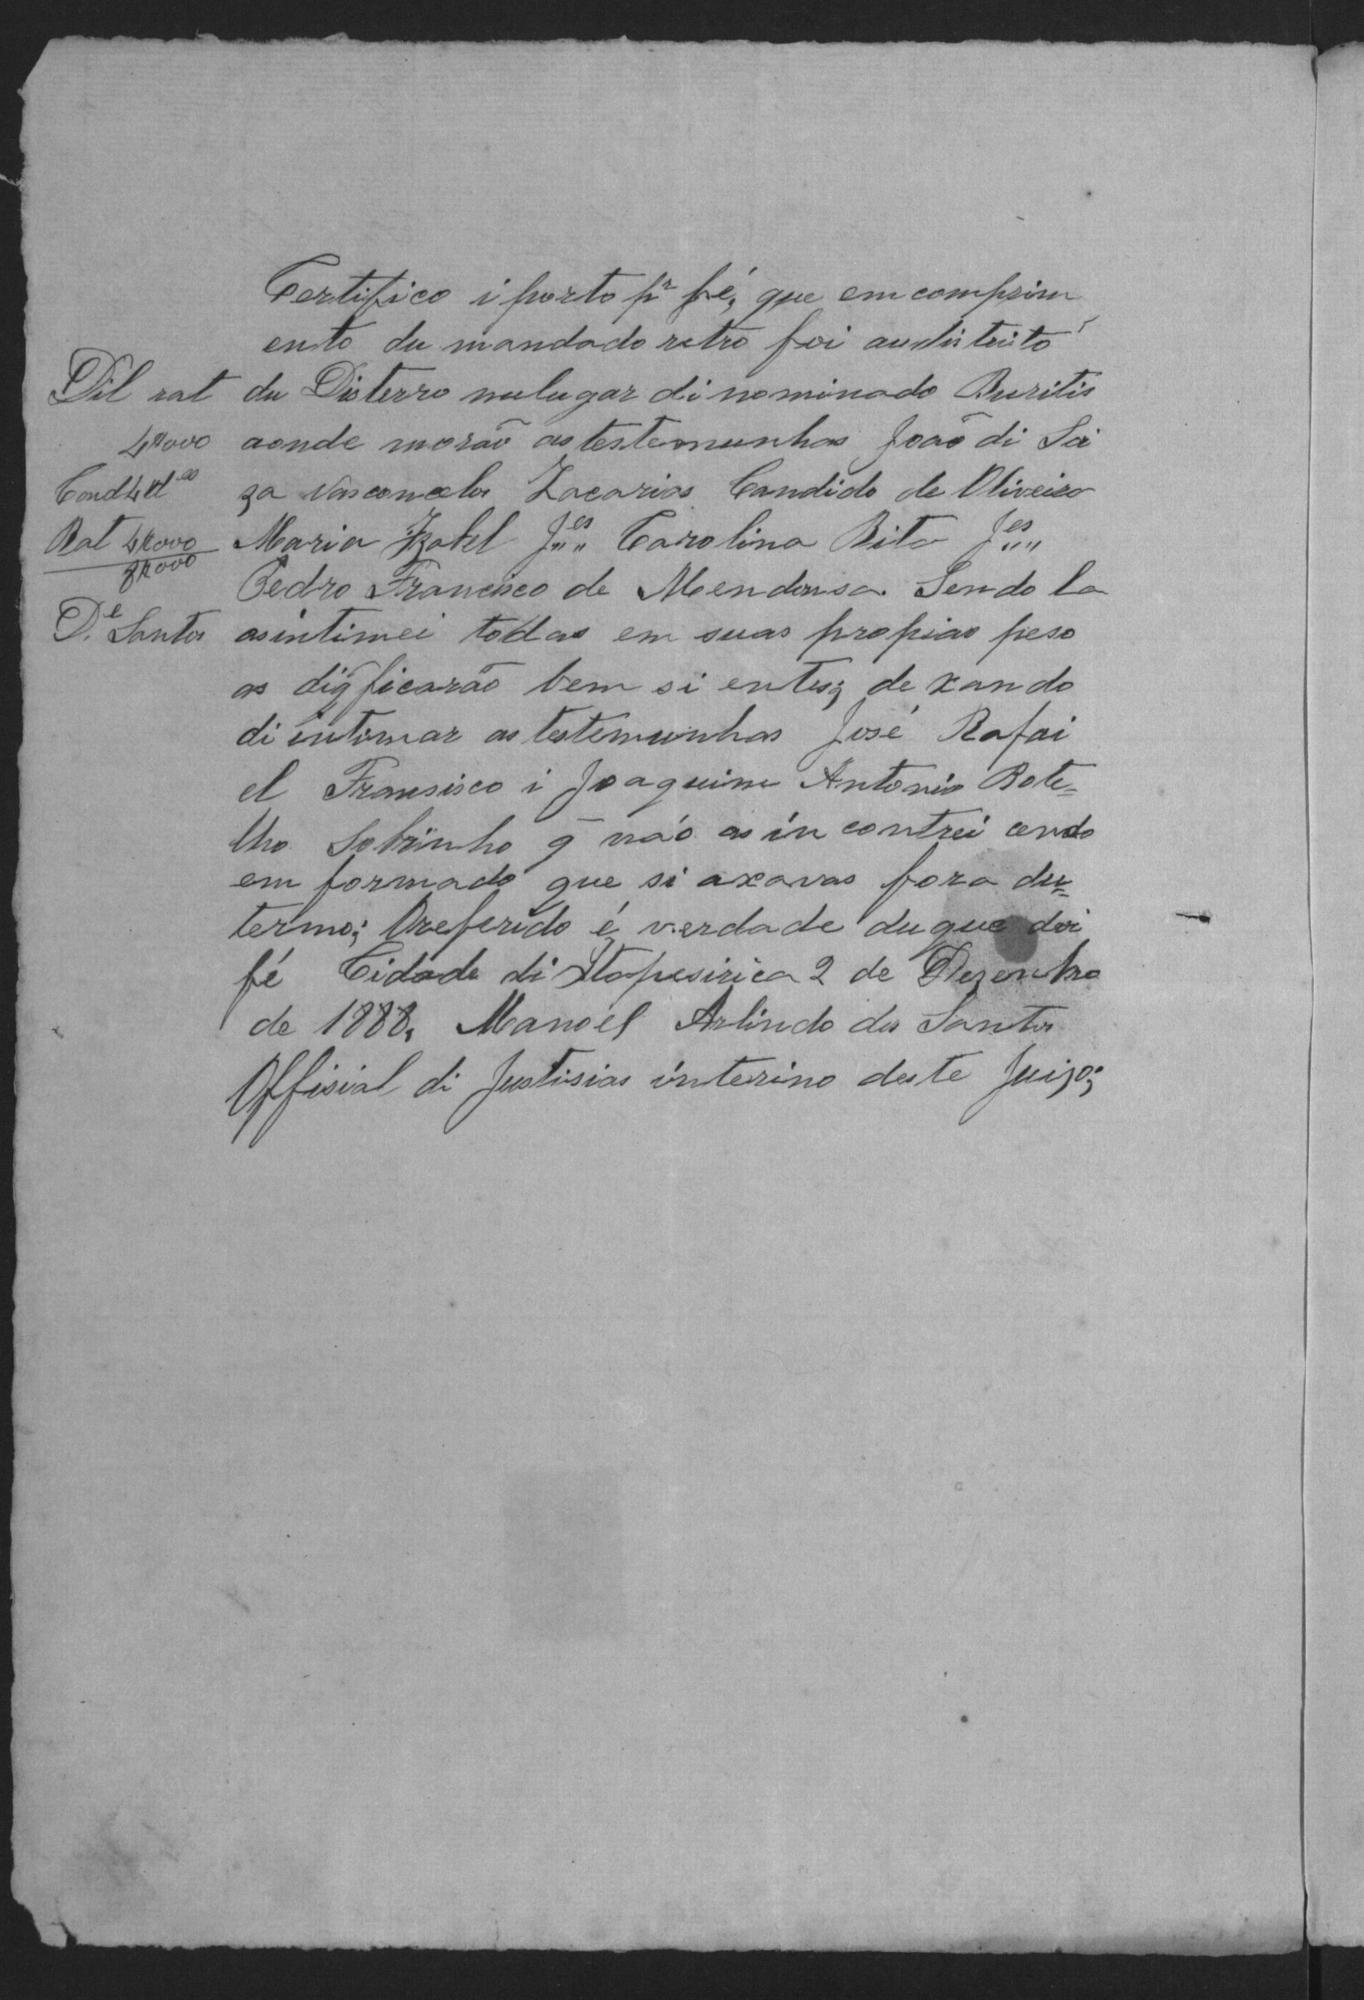 Certifico i porto pr fé, que em comprim
ento du mandado retro foi audistrito
Dil rat
du Disterro nulugar dinominado Buritis
4000
aonde morão as testemunhas João di Sou
Cond
za vasconcelos Zacarias Candido de Oliveira
Rat 4000
Maria Izabel Jes Carolina Rita Jes
8000
Pedro Francisco de Mendonsa. Sendo la
De Santos
asintimei todas em suas propias peso
as ficarão bem si entes; de xando
di intimar as testemunhas José Rafai
el Fransisco i Joaquim Antonio Bote=
lho Sobrinho q não as in contrei cendo
em formado que si axavas fora du=
termo; Oreferido é verdade duque doi
fé Cidade di Itapesirica 2 de Dezenbro
de 1888. Manoel Arlindo dos Santos
Offisial di Justisias interino deste Juizo;